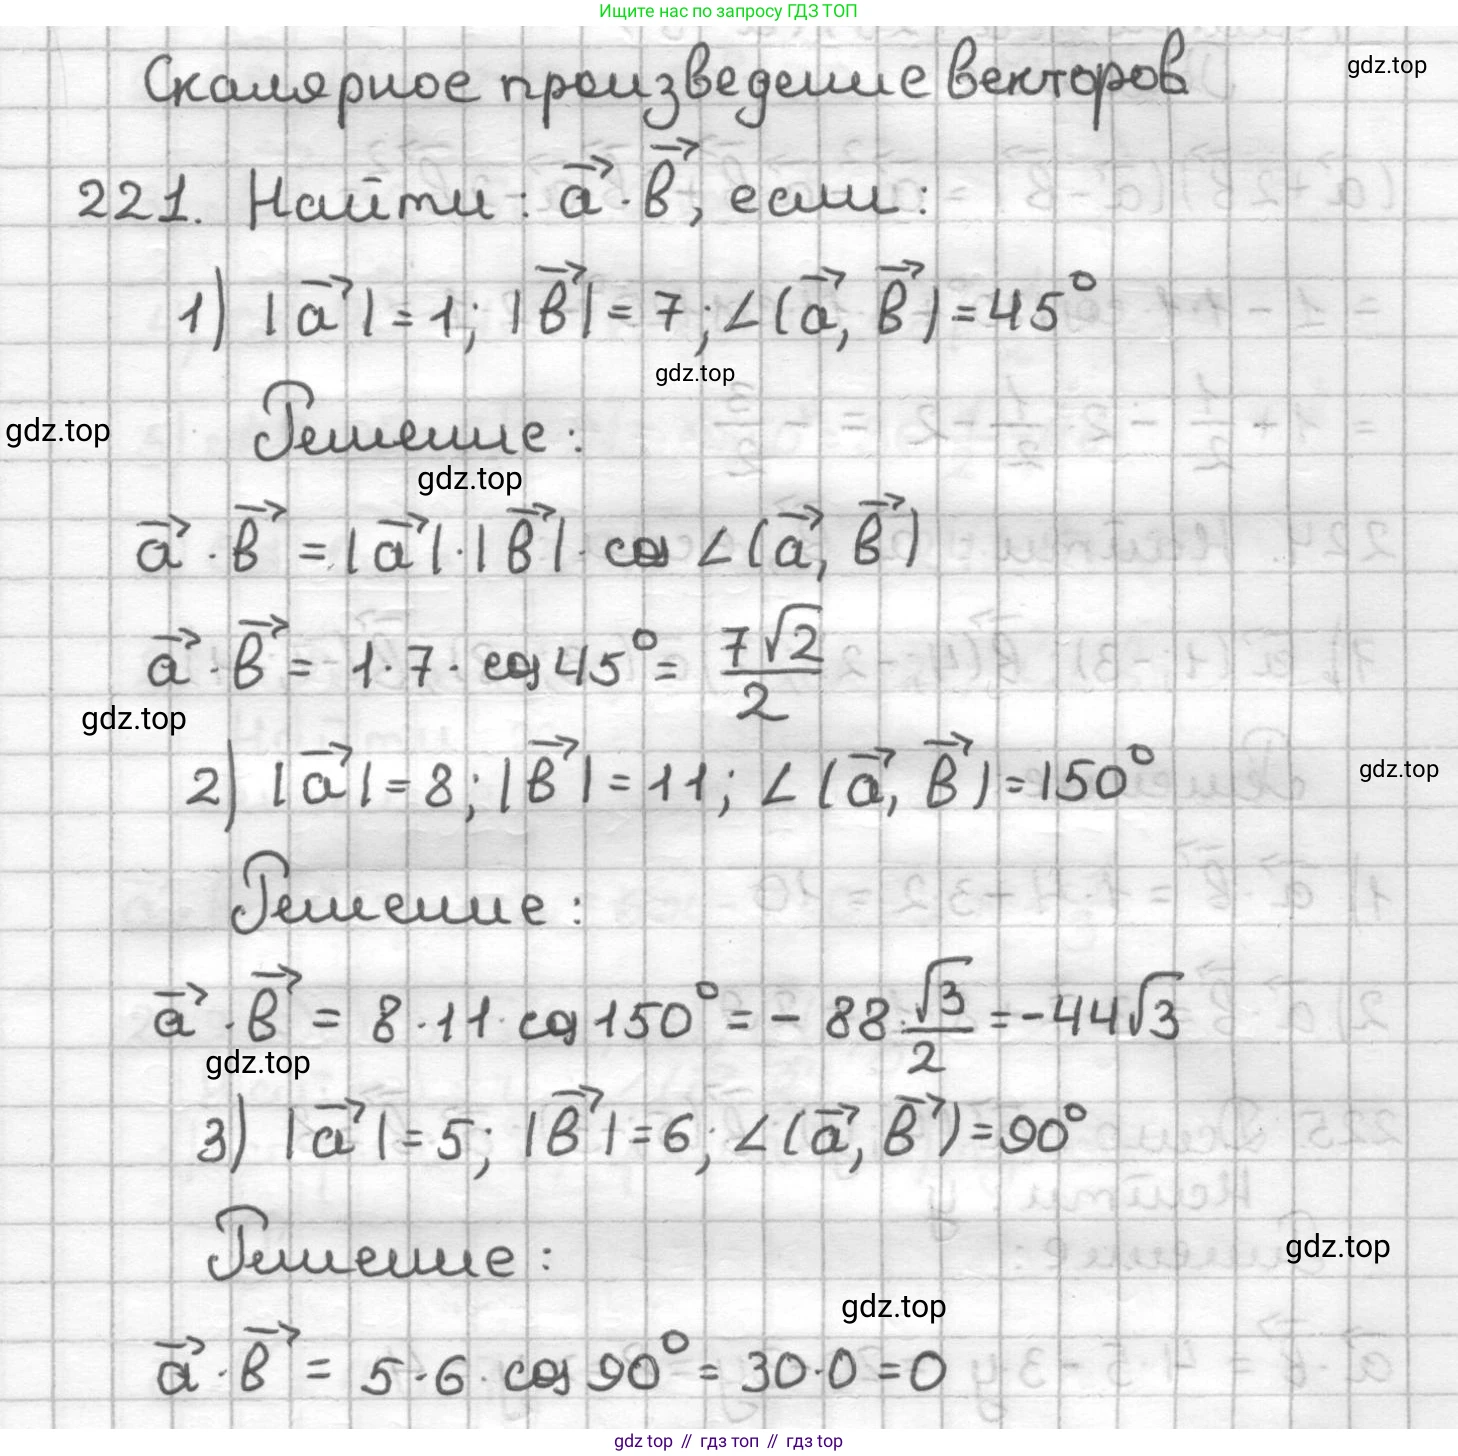 Ищите нас по запросу ГДЗ ТОП
Скалярное произведение векторов
gdz.top
221. Найти: a⃗ · b⃗, если:
1) |a⃗| = 1; |b⃗| = 7; ∠(a⃗, b⃗) = 45°
gdz.top
Решение:
gdz.top
gdz.top
a⃗ · b⃗ = |a⃗| · |b⃗| · cos ∠(a⃗, b⃗)
a⃗ · b⃗ = 1 · 7 · cos 45° = 7√2/2
gdz.top
2) |a⃗| = 8; |b⃗| = 11; ∠(a⃗, b⃗) = 150°
gdz.top
Решение:
a⃗ · b⃗ = 8 · 11 · cos 150° = - 88 · √3/2 = -44√3
gdz.top
3) |a⃗| = 5; |b⃗| = 6; ∠(a⃗, b⃗) = 90°
Решение:
gdz.top
gdz.top
a⃗ · b⃗ = 5 · 6 · cos 90° = 30 · 0 = 0
gdz top // гдз топ // gdz top